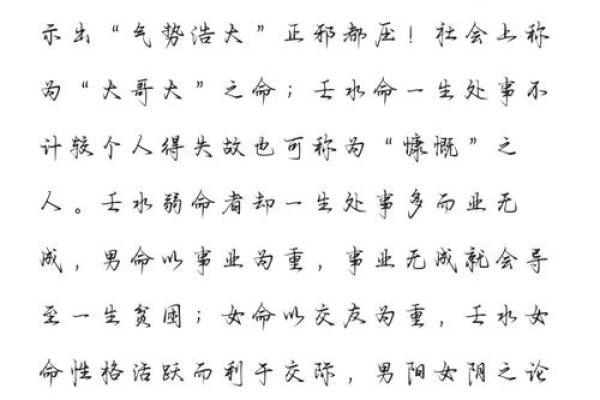 示出“气势浩大”正邪都压！社会上称
为“大哥大”之命；壬水命一生处事不
计较个人得失故也可称为“慷慨”之
人。壬水弱命者却一生处事多而业无
成，男命以事业为重，事业无成就会导
至一生贫困；女命以交友为重，壬水女
命性格活跃而利于交际，男阳女阴之论